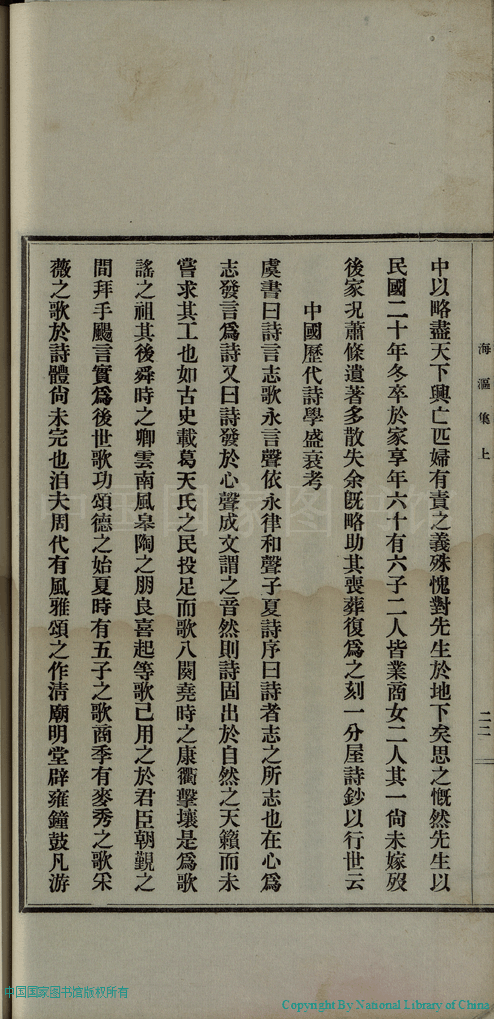 海漚集上
二二
中以略盡天下興亡匹婦有責之義殊愧對先生於地下矣思之慨然先生以
民國二十年冬卒於家享年六十有六子二人皆業商女二人其一尙未嫁歿
後家況蕭條遺著多散失余旣略助其喪葬復爲之刻一分屋詩鈔以行世云
中國歷代詩學盛衰考
虞書曰詩言志歌永言聲依永律和聲子夏詩序曰詩者志之所志也在心爲
志發言爲詩又曰詩發於心聲成文謂之音然則詩固出於自然之天籟而未
嘗求其工也如古史載葛天氏之民投足而歌八闋堯時之康衢擊壤是爲歌
謠之祖其後舜時之卿雲南風皋陶之朋良喜起等歌已用之於君臣朝覲之
間拜手颺言實爲後世歌功頌德之始夏時有五子之歌商季有麥秀之歌采
薇之歌於詩體尙未完也洎夫周代有風雅頌之作淸廟明堂辟雍鐘鼓凡游
中国国家图书馆
中国国家图书馆版权所有
Copyright By National Library of China